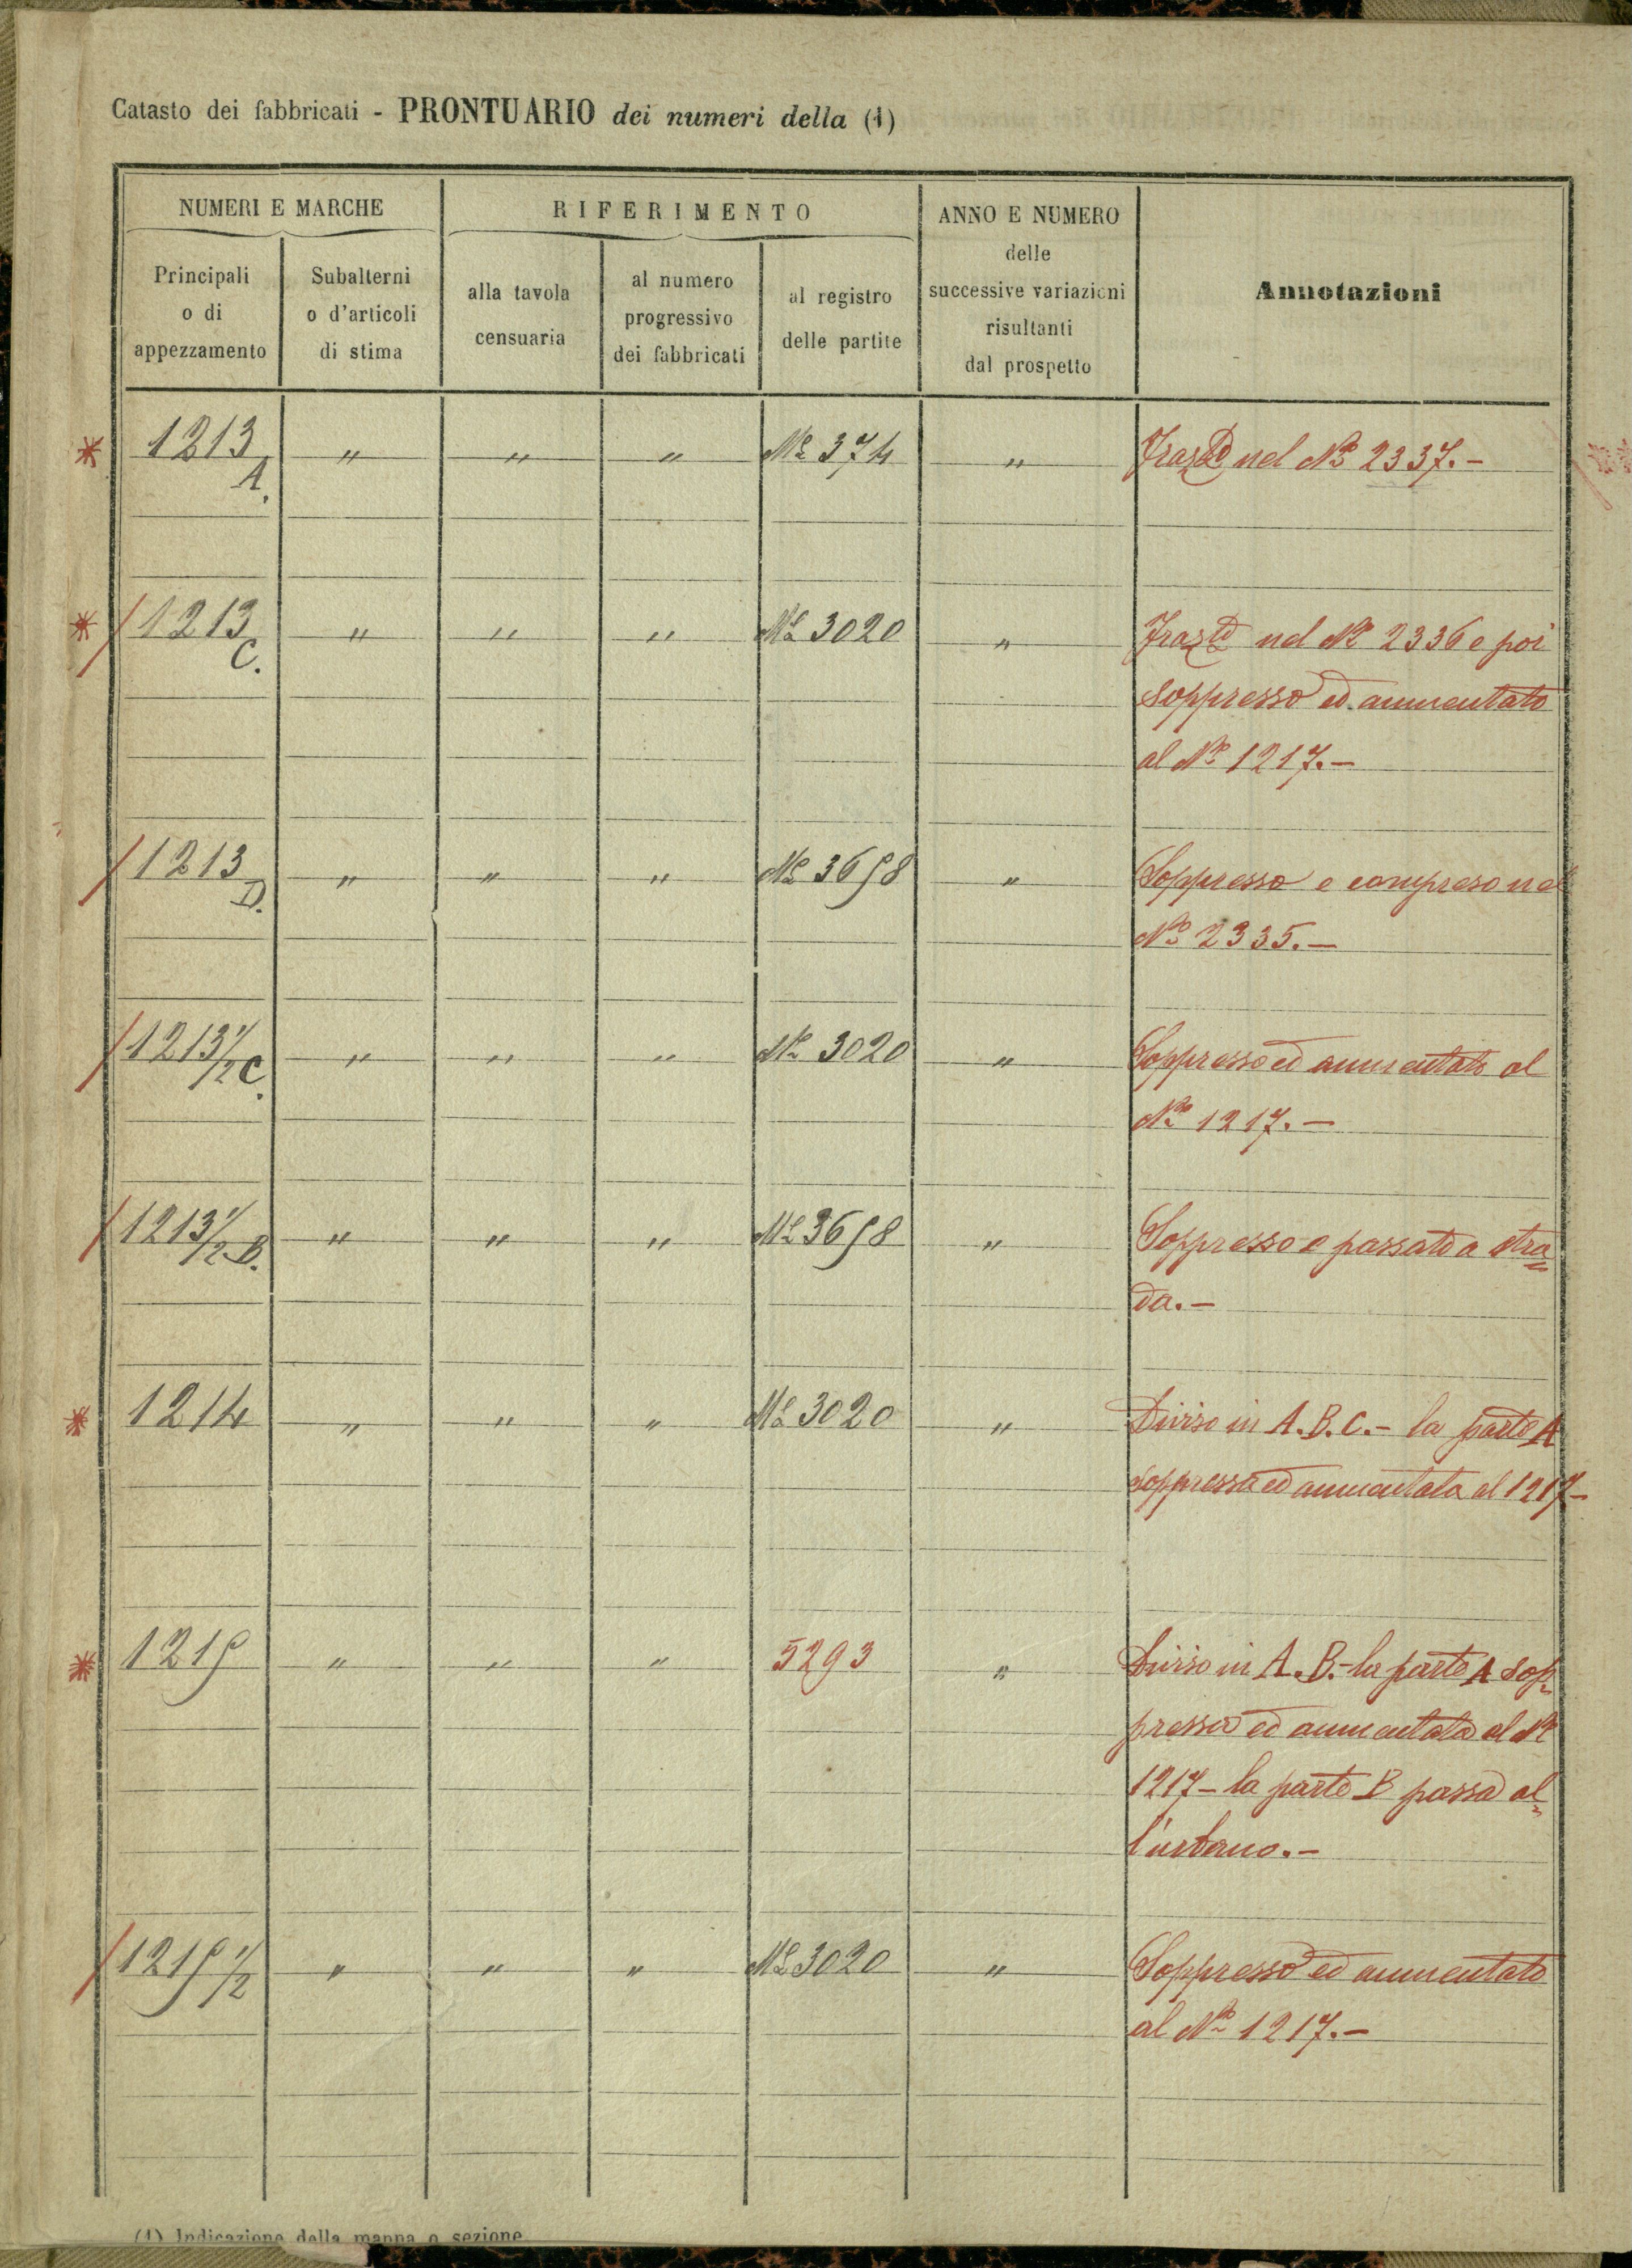 Catasto dei fabbricati - PRONTUARIO dei numeri della (1)
NUMERI E MARCHE
RIFERIMENTO
ANNO E NUMERO
delle
successive variazioni
risultanti
dal prospetto
Annotazioni
Principali
o di
appezzamento
Subalterni
o d'articoli
di stima
alla tavola
censuaria
al numero
progressivo
dei fabbricati
al registro
delle partite
1213 A. " " " № 374 " nel № 2337.-
1213 C. " " " № 3020 " nel № 2336 e poi
soppresso ed aumentato
al № 1217.-
1213 D. " " " № 3658 " Soppresso e compreso nel
№ 2335.-
1213 1/2 C. " " " № 3020 " Soppresso ed aumentato al
№ 1217.-
1213 1/2 B. " " " № 3658 " Soppresso e passato a stra=
da.-
1214 " " " № 3020 " Diviso in A. B. C. - la parte A
soppressa ed aumentata al 1217-
1215 " " " 5293 " Diviso in A. B.- la parte A sop=
pressa ed aumentata al №
1217 - la parte B passa al=
l'urbano.-
1215 1/2 " " " № 3020 " Soppresso ed aumentato
al № 1217.-
(1) Indicazione della mappa o sezione.